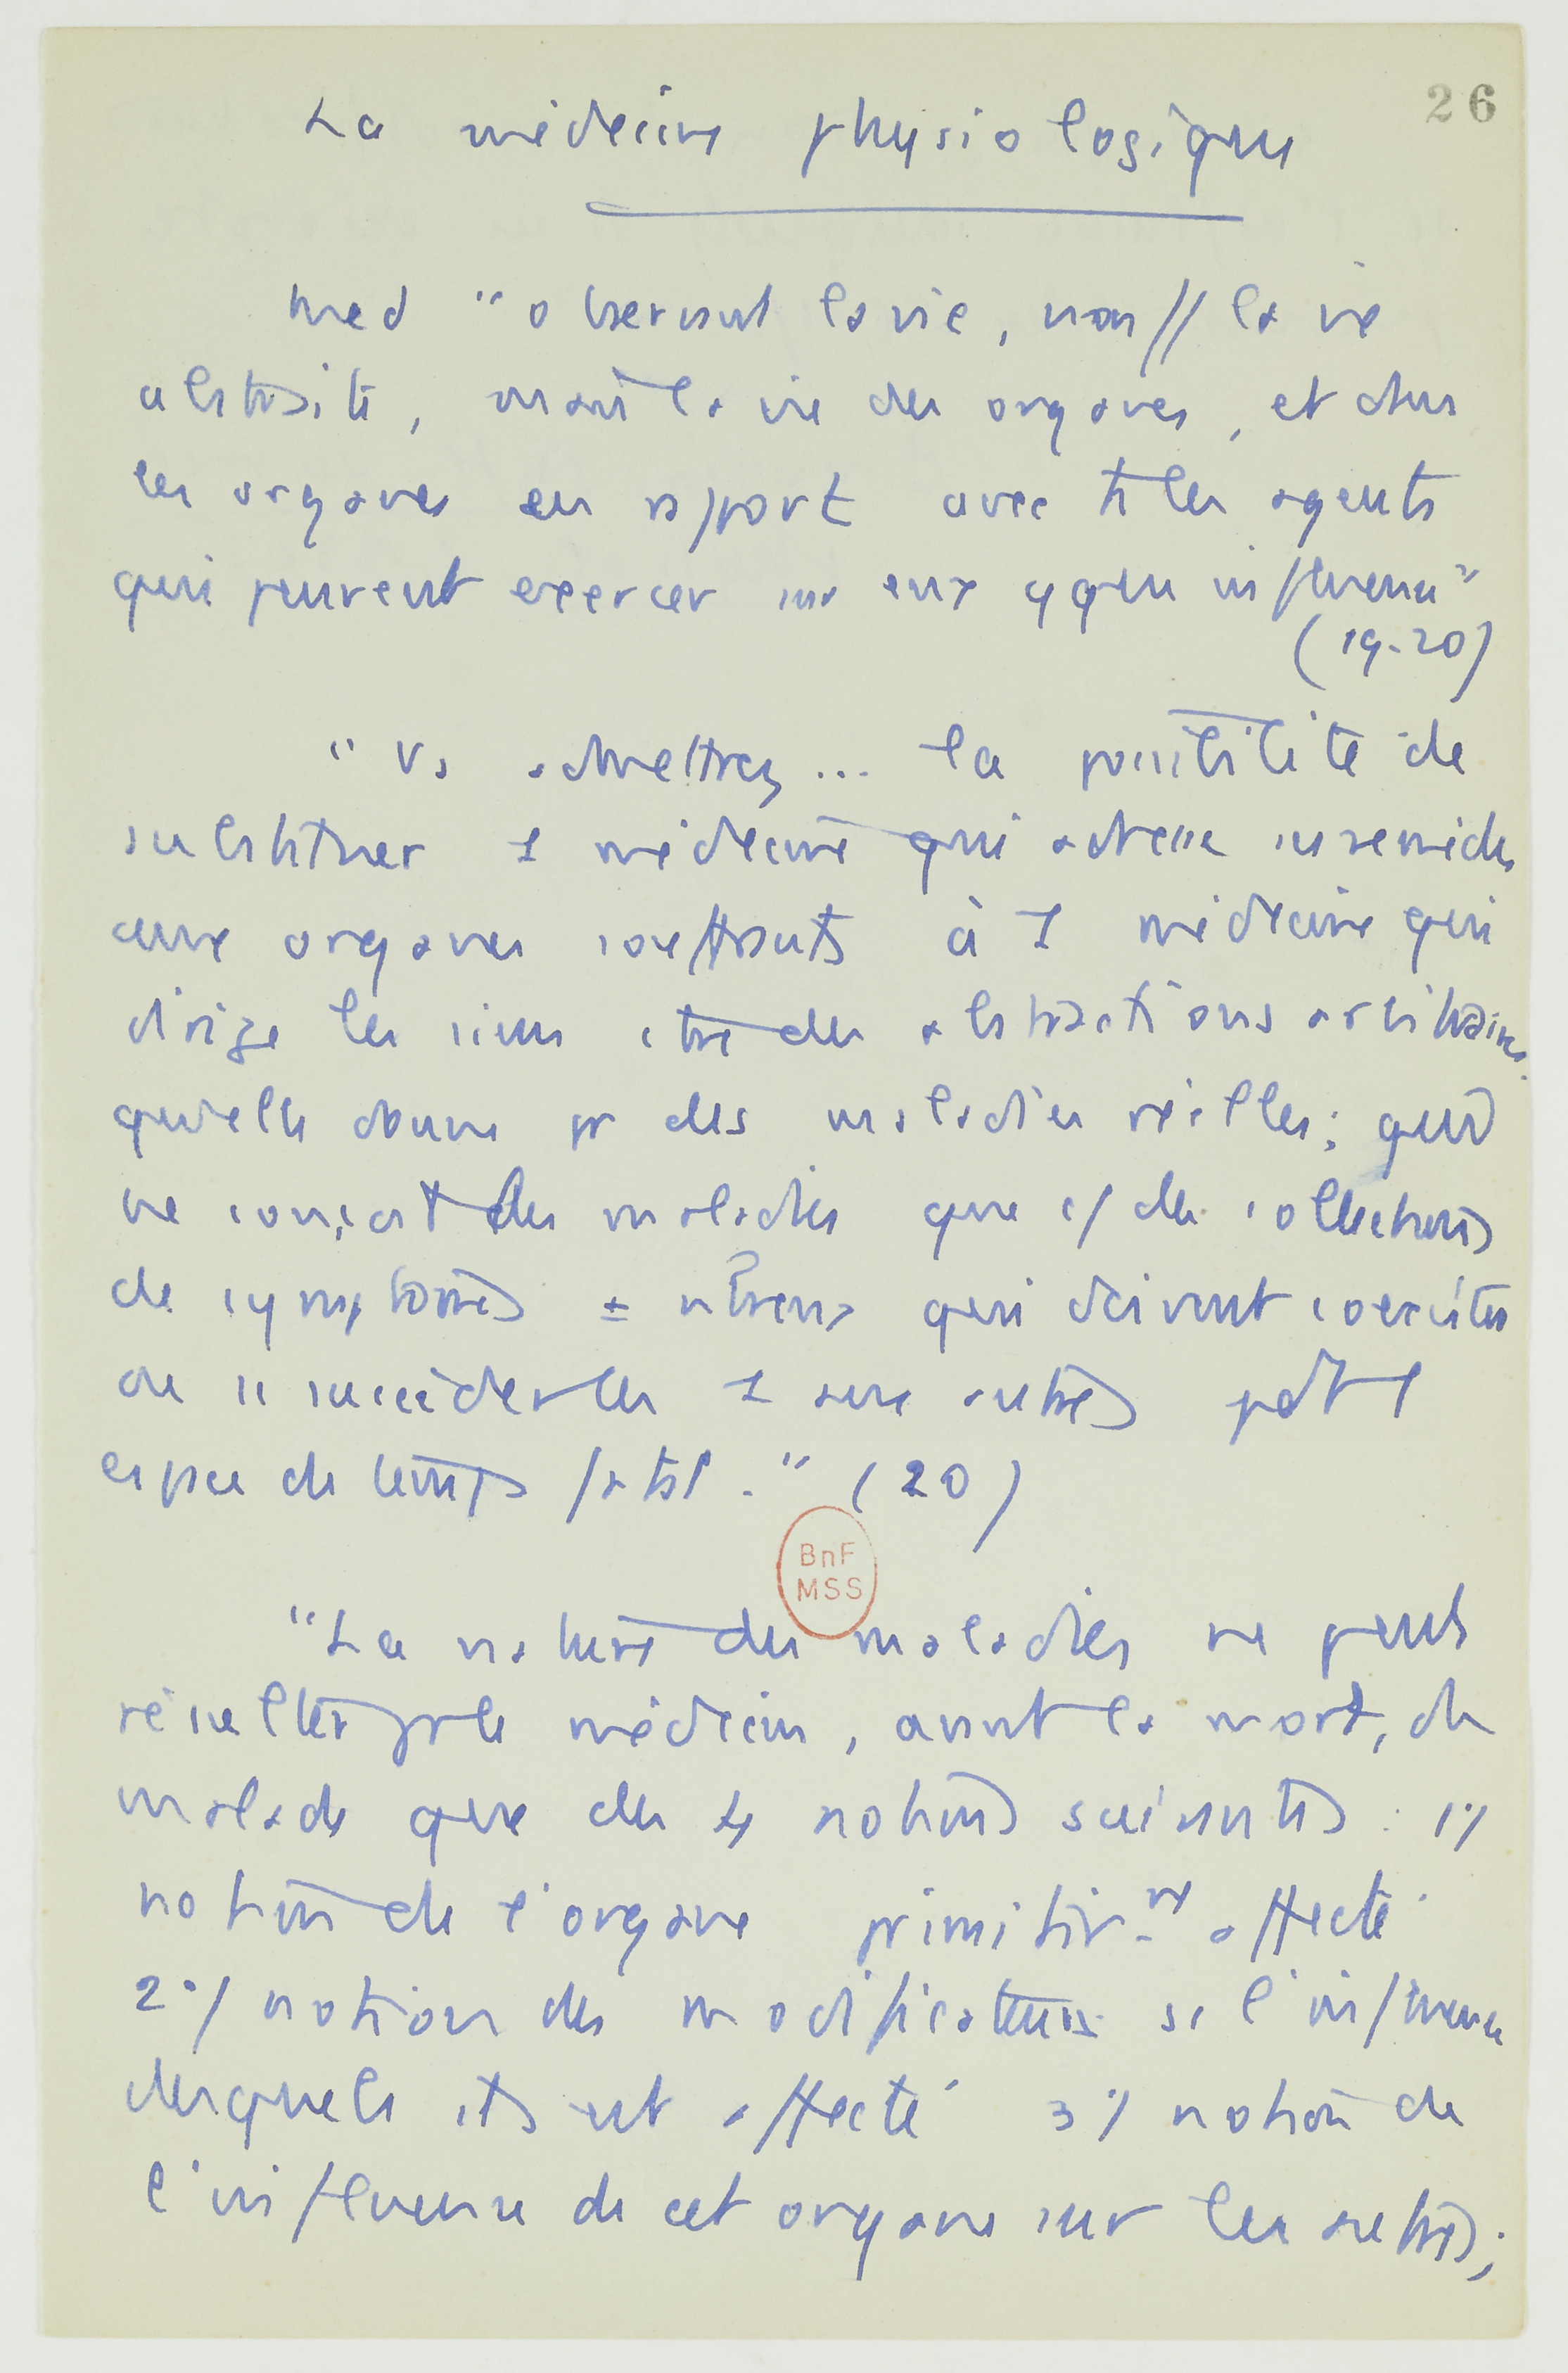 26
La médecine physiologique
Med "observant la vie, non // la vie
abstraite, mais la vie des organes, et dans
les organes en rapport avec ts les agents
qui peuvent exercer sur eux qque influence"
(19-20)
"Vs admettrez... la possibilité de
substituer 1 médecine qui adresse ses remèdes
aux organes souffrants à 1 médecine qui
dirige les siens ctre des abstractions arbitraires
qu'elle donne pr des maladies réelles; qui
ne conçoit des maladies que c/ des collections
de symptômes ± nbreux qui doivent coexister
ou se succéder les 1 aux autres pdt 1
espace de temps fatal." (20)
BnF
MSS
"La nature des maladies ne peut
résulter pr le médecin, avant la mort, du
malade que des 4 notions suivantes : 1°/
notion de l'organe primitivt affecté
2°/ notion des modificateurs ss l'influence
desquels il est affecté 3°/ notion de
l'influence de cet organe sur les autres;